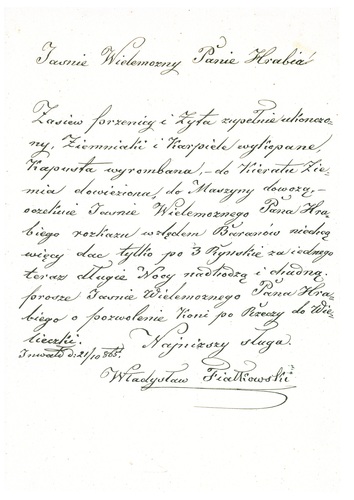 Jasnie Wielemozny Panie Hrabia!
Zasiew przenicy i Zyta zupełnie ukonczo-
ny, Ziemniaki i Karpiele wykopane,
Kapusta wyrombana, - do Kieratu Zie-
mia dowieziona, do Maszyny dowozą, -
oczekuie Jawnie Wielemoznego Pana Hra-
biego rozkazu względem Baranów niechcą
więcy dac tylko po 3 Rynskie za iednego
teraz długie Nocy nadchodzą i chudną.
prosze Jasnie Wielemoznego Pana Hra-
biego o pozwolenie Koni po Rzeczy do Wie-
liczki. Najnizszy sługa.
Inwałd d: 21/10 865.
Władysław Fiałkowski